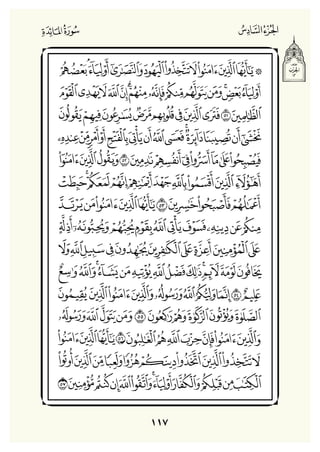 الجُزْءُ السَّادِسُ
سُورَةُ المَائِدَةِ
۞ يَٰٓأَيُّهَا ٱلَّذِينَ ءَامَنُوا۟ لَا تَتَّخِذُوا۟ ٱلْيَهُودَ وَٱلنَّصَٰرَىٰٓ أَوْلِيَآءَ بَعْضُهُمْ
أَوْلِيَآءُ بَعْضٍ وَمَن يَتَوَلَّهُم مِّنكُمْ فَإِنَّهُۥ مِنْهُمْ إِنَّ ٱللَّهَ لَا يَهْدِى ٱلْقَوْمَ
ٱلظَّٰلِمِينَ ٥١ فَتَرَى ٱلَّذِينَ فِى قُلُوبِهِم مَّرَضٌ يُسَٰرِعُونَ فِيهِمْ يَقُولُونَ
نَخْشَىٰٓ أَن تُصِيبَنَا دَآئِرَةٌ فَعَسَى ٱللَّهُ أَن يَأْتِىَ بِٱلْفَتْحِ أَوْ أَمْرٍ مِّنْ عِندِهِۦ
فَيُصْبِحُوا۟ عَلَىٰ مَآ أَسَرُّوا۟ فِىٓ أَنفُسِهِمْ نَٰدِمِينَ ٥٢ وَيَقُولُ ٱلَّذِينَ ءَامَنُوٓا۟
أَهَٰٓؤُلَآءِ ٱلَّذِينَ أَقْسَمُوا۟ بِٱللَّهِ جَهْدَ أَيْمَٰنِهِمْ إِنَّهُمْ لَمَعَكُمْ حَبِطَتْ
أَعْمَٰلُهُمْ فَأَصْبَحُوا۟ خَٰسِرِينَ ٥٣ يَٰٓأَيُّهَا ٱلَّذِينَ ءَامَنُوا۟ مَن يَرْتَدَّ
مِنكُمْ عَن دِينِهِۦ فَسَوْفَ يَأْتِى ٱللَّهُ بِقَوْمٍ يُحِبُّهُمْ وَيُحِبُّونَهُۥٓ أَذِلَّةٍ
عَلَى ٱلْمُؤْمِنِينَ أَعِزَّةٍ عَلَى ٱلْكَٰفِرِينَ يُجَٰهِدُونَ فِى سَبِيلِ ٱللَّهِ وَلَا
يَخَافُونَ لَوْمَةَ لَآئِمٍ ذَٰلِكَ فَضْلُ ٱللَّهِ يُؤْتِيهِ مَن يَشَآءُ وَٱللَّهُ وَٰسِعٌ
عَلِيمٌ ٥٤ إِنَّمَا وَلِيُّكُمُ ٱللَّهُ وَرَسُولُهُۥ وَٱلَّذِينَ ءَامَنُوا۟ ٱلَّذِينَ يُقِيمُونَ
ٱلصَّلَوٰةَ وَيُؤْتُونَ ٱلزَّكَوٰةَ وَهُمْ رَٰكِعُونَ ٥٥ وَمَن يَتَوَلَّ ٱللَّهَ وَرَسُولَهُۥ
وَٱلَّذِينَ ءَامَنُوا۟ فَإِنَّ حِزْبَ ٱللَّهِ هُمُ ٱلْغَٰلِبُونَ ٥٦ يَٰٓأَيُّهَا ٱلَّذِينَ ءَامَنُوا۟
لَا تَتَّخِذُوا۟ ٱلَّذِينَ ٱتَّخَذُوا۟ دِينَكُمْ هُزُوًا وَلَعِبًا مِّنَ ٱلَّذِينَ أُوتُوا۟
ٱلْكِتَٰبَ مِن قَبْلِكُمْ وَٱلْكُفَّارَ أَوْلِيَآءَ وَٱتَّقُوا۟ ٱللَّهَ إِن كُنتُم مُّؤْمِنِينَ ٥٧
١١٧